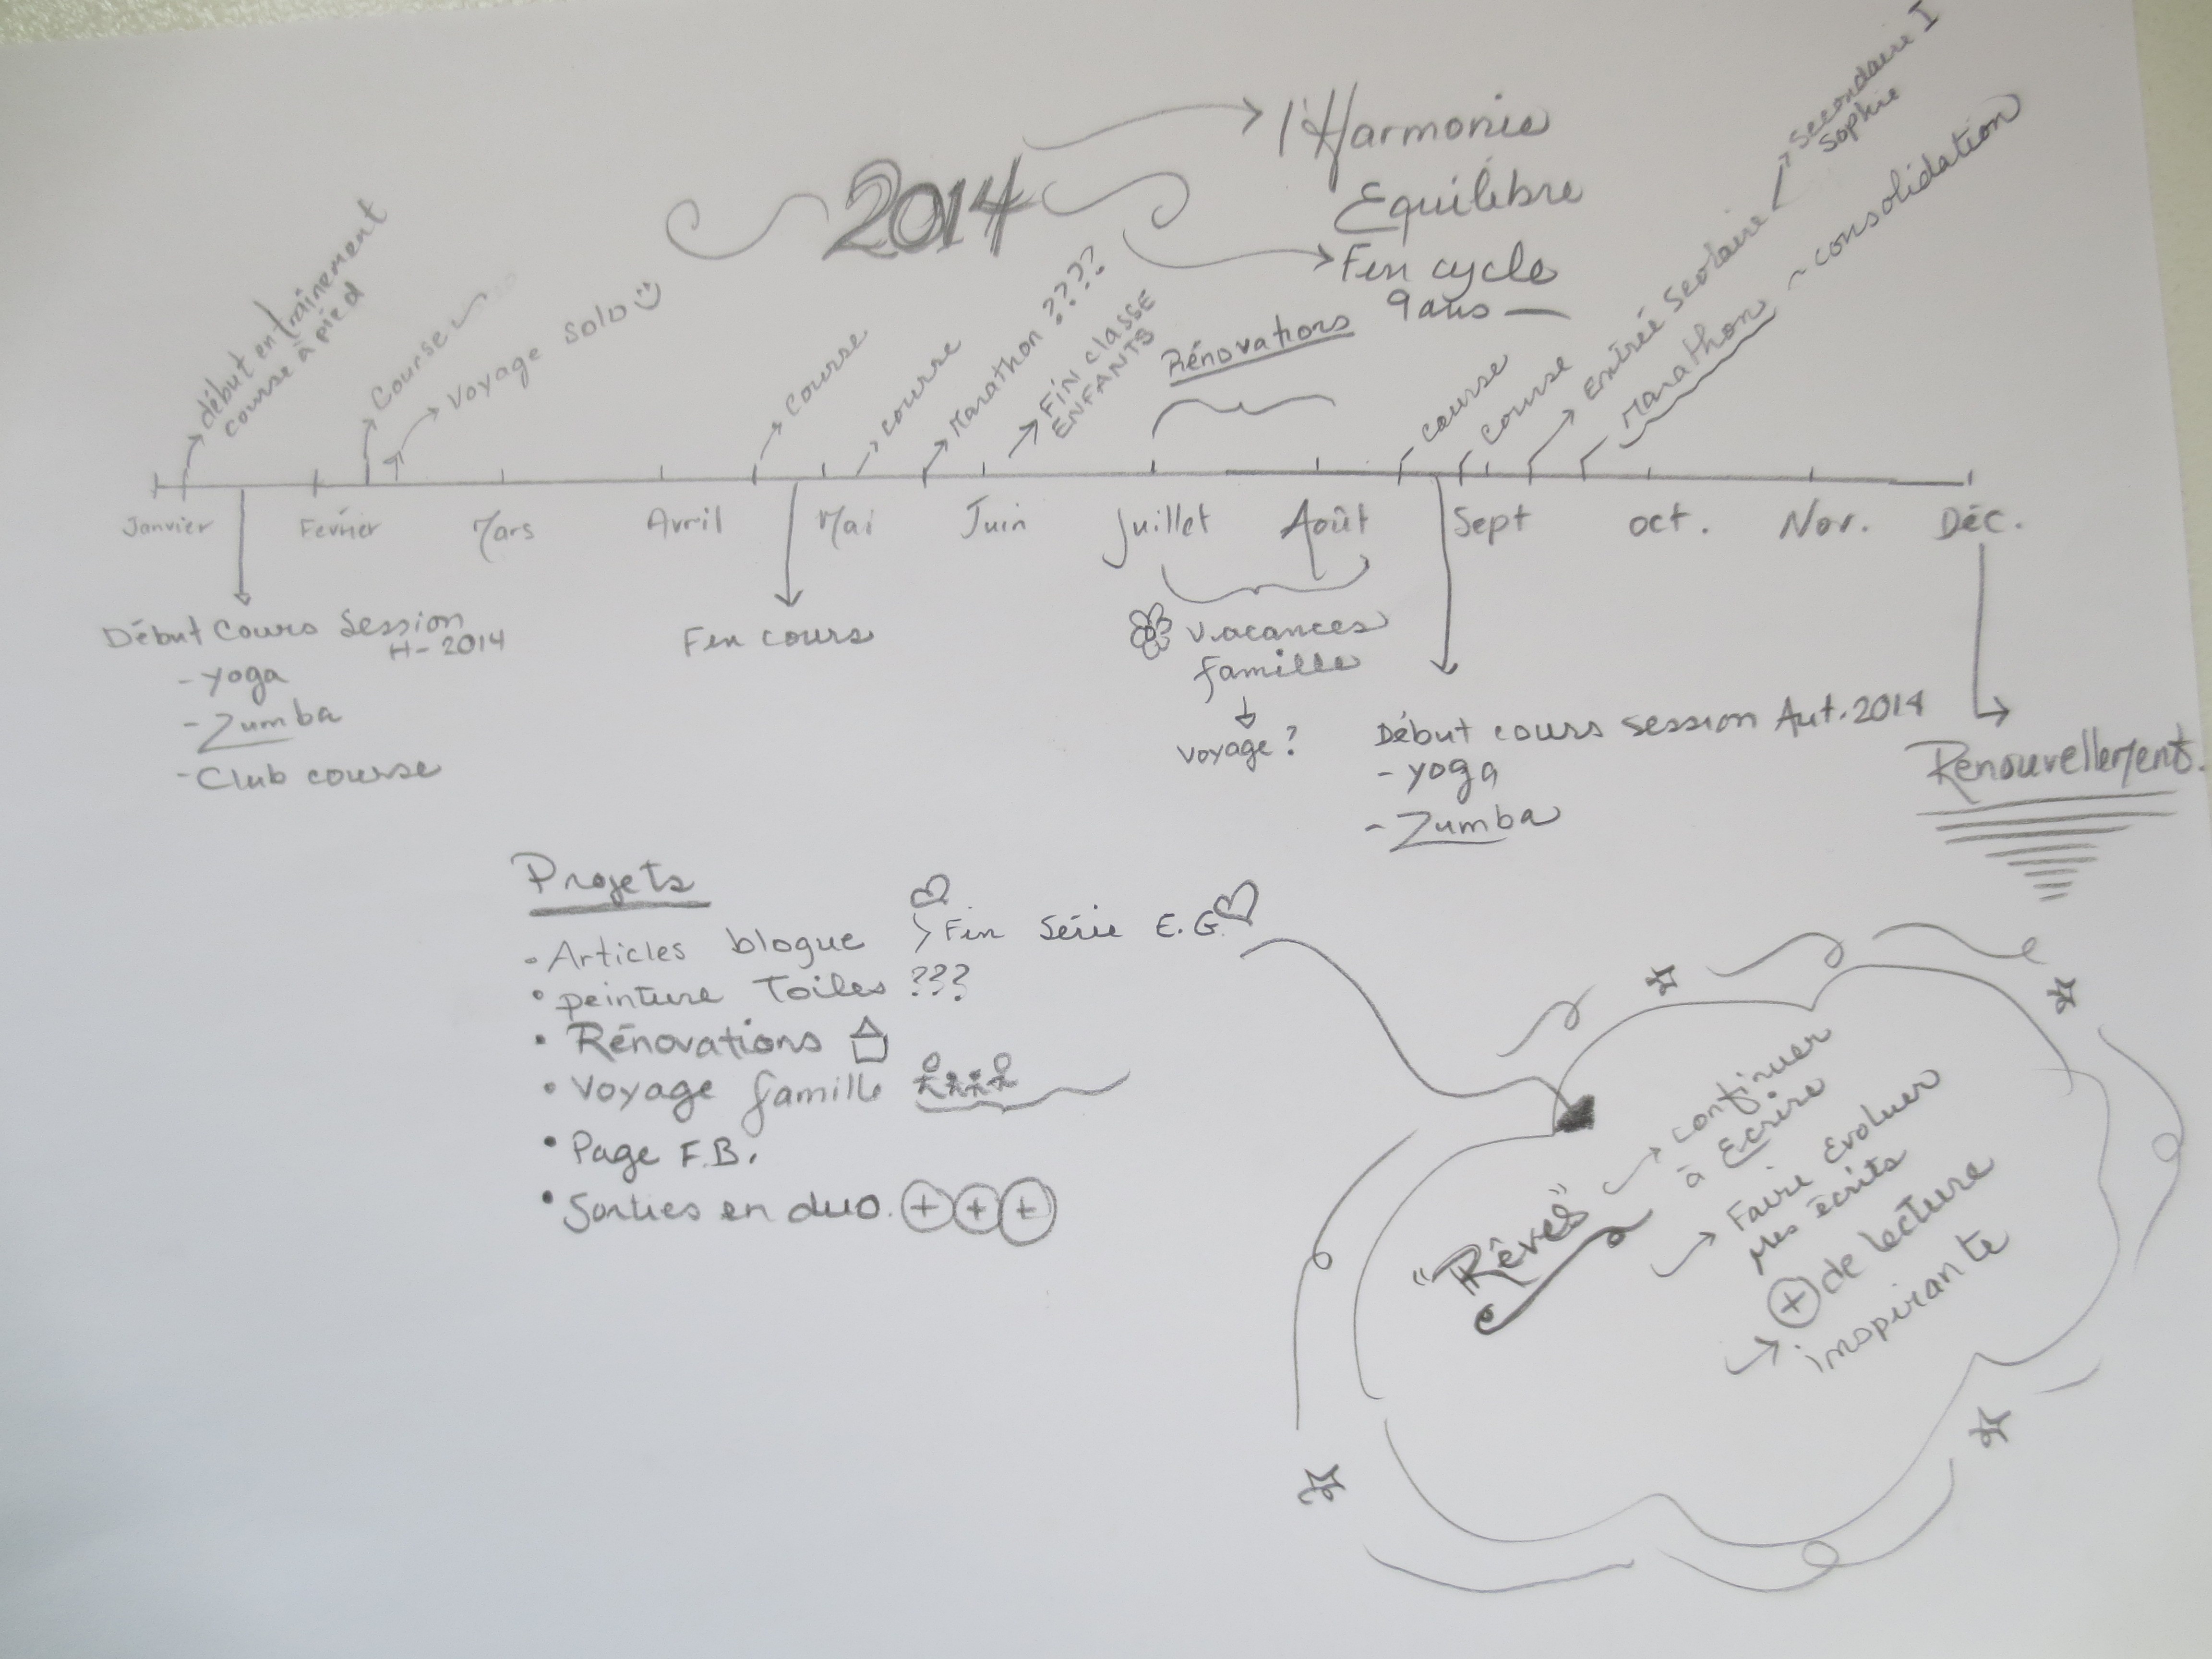 2014
l'Harmonie
Equilibre
Fin cycle
9 ans
début entraînement
course à pied
Course
Voyage solo
Course
course
Marathon ????
FIN classe
ENFANTS
Rénovations
course
course
Entréé scolaire
secondaire I
Sophie
Marathon
~ consolidation
Janvier
Février
Mars
Avril
Mai
Juin
Juillet
Août
Sept
oct.
Nov.
Déc.
Début Cours Session
H-2014
- yoga
- Zumba
- Club course
Fin cours
Vacances
famille
voyage ?
Début cours session Aut. 2014
- yoga
- Zumba
Renouvellement.
Projets
• Articles blogue > Fin Série E.G.
• peinture Toiles ???
• Rénovations
• Voyage famille
• Page F.B.
• Sorties en duo. + + +
"Rêves"
continuer
à Ecrire
Faire Evoluer
Mes écrits
+ de lecture
inspirante